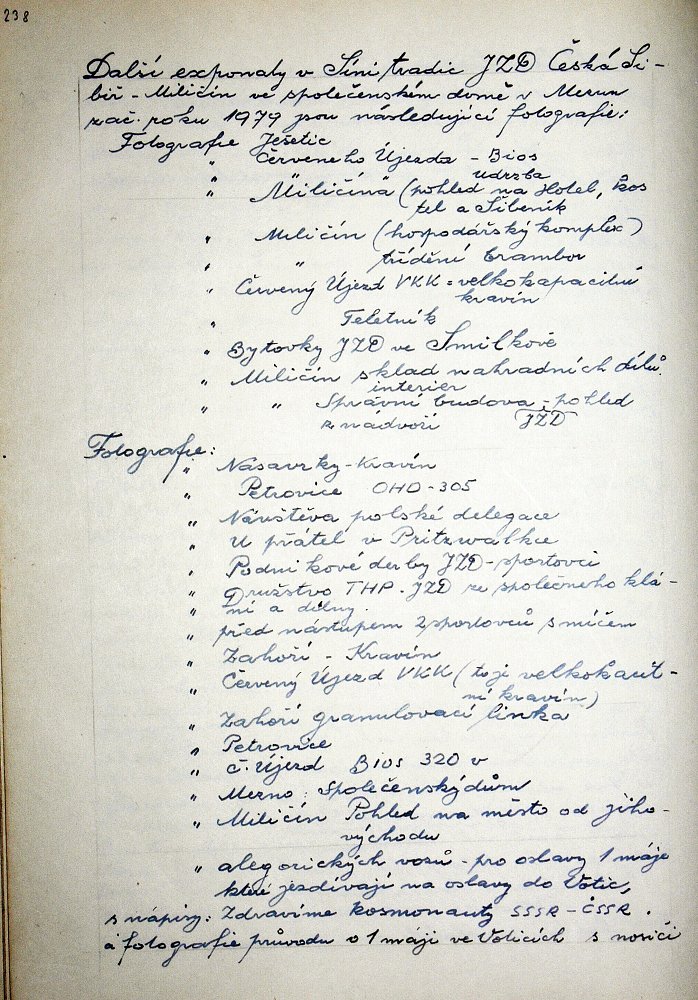 238
Další exponaty v Síni tradic JZD Česká Si-
biř - Miličín ve společenském domě v Mezně
zač. roku 1979 jsou následující fotografie:
Fotografie Ješetic
" Červeneho Újezda - Bios
" " udrzba
" Miličína (pohled na Hotel, kos
tel a Šibeník
" Miličín (hospodářský komplex)
" " třídění brambor
" Červený Újezd VKK = velkokapacitní
kravín
" Teletník
" Bytovky JZD ve Smilkově
" Miličín sklad nahradních dílů.
interier
" " Správní budova - pohled
z nádvoří JZD
Fotografie:
" Násavrky - Kravín
" Petrovice OHO - 305
" Návštěva polské delegace
" U přátel v Pritzwalke
" Podnikové derby JZD - sportovci
" Družstvo THP. JZD ze společneho klá-
" ní a dílny.
" před nástupem 2 sportovců s míčem
" Zahoří - Kravín
" Červený Újezd VKK (to je velkokacit-
ní kravín)
" Zahoří granulovací linka
" Petrovice
" č. Újezd Bios 320 v
" Mezno : Společenský dům
" Miličín Pohled na město od jiho-
východu
" alegorických vozů - pro oslavy 1 máje
které jezdívají na oslavy do Votic,
s nápisy: Zdravíme kosmonauty SSSR - ČSSR.
a fotografie průvodu o 1 máji ve Voticích s nosiči